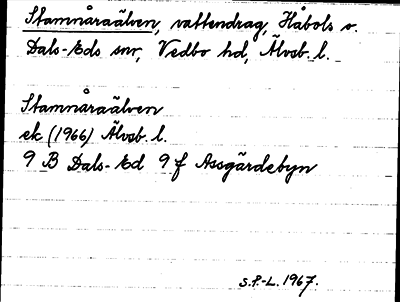 Stamnåraälven, vattendrag, Håbols o.
Dals-Eds snr, Vedbo hd, Älvsb. l.
Stamnåraälven
ek (1966) Älvsb. l.
9 B Dals-Ed 9 f Assgärdebyn
S.P.-L. 1967.